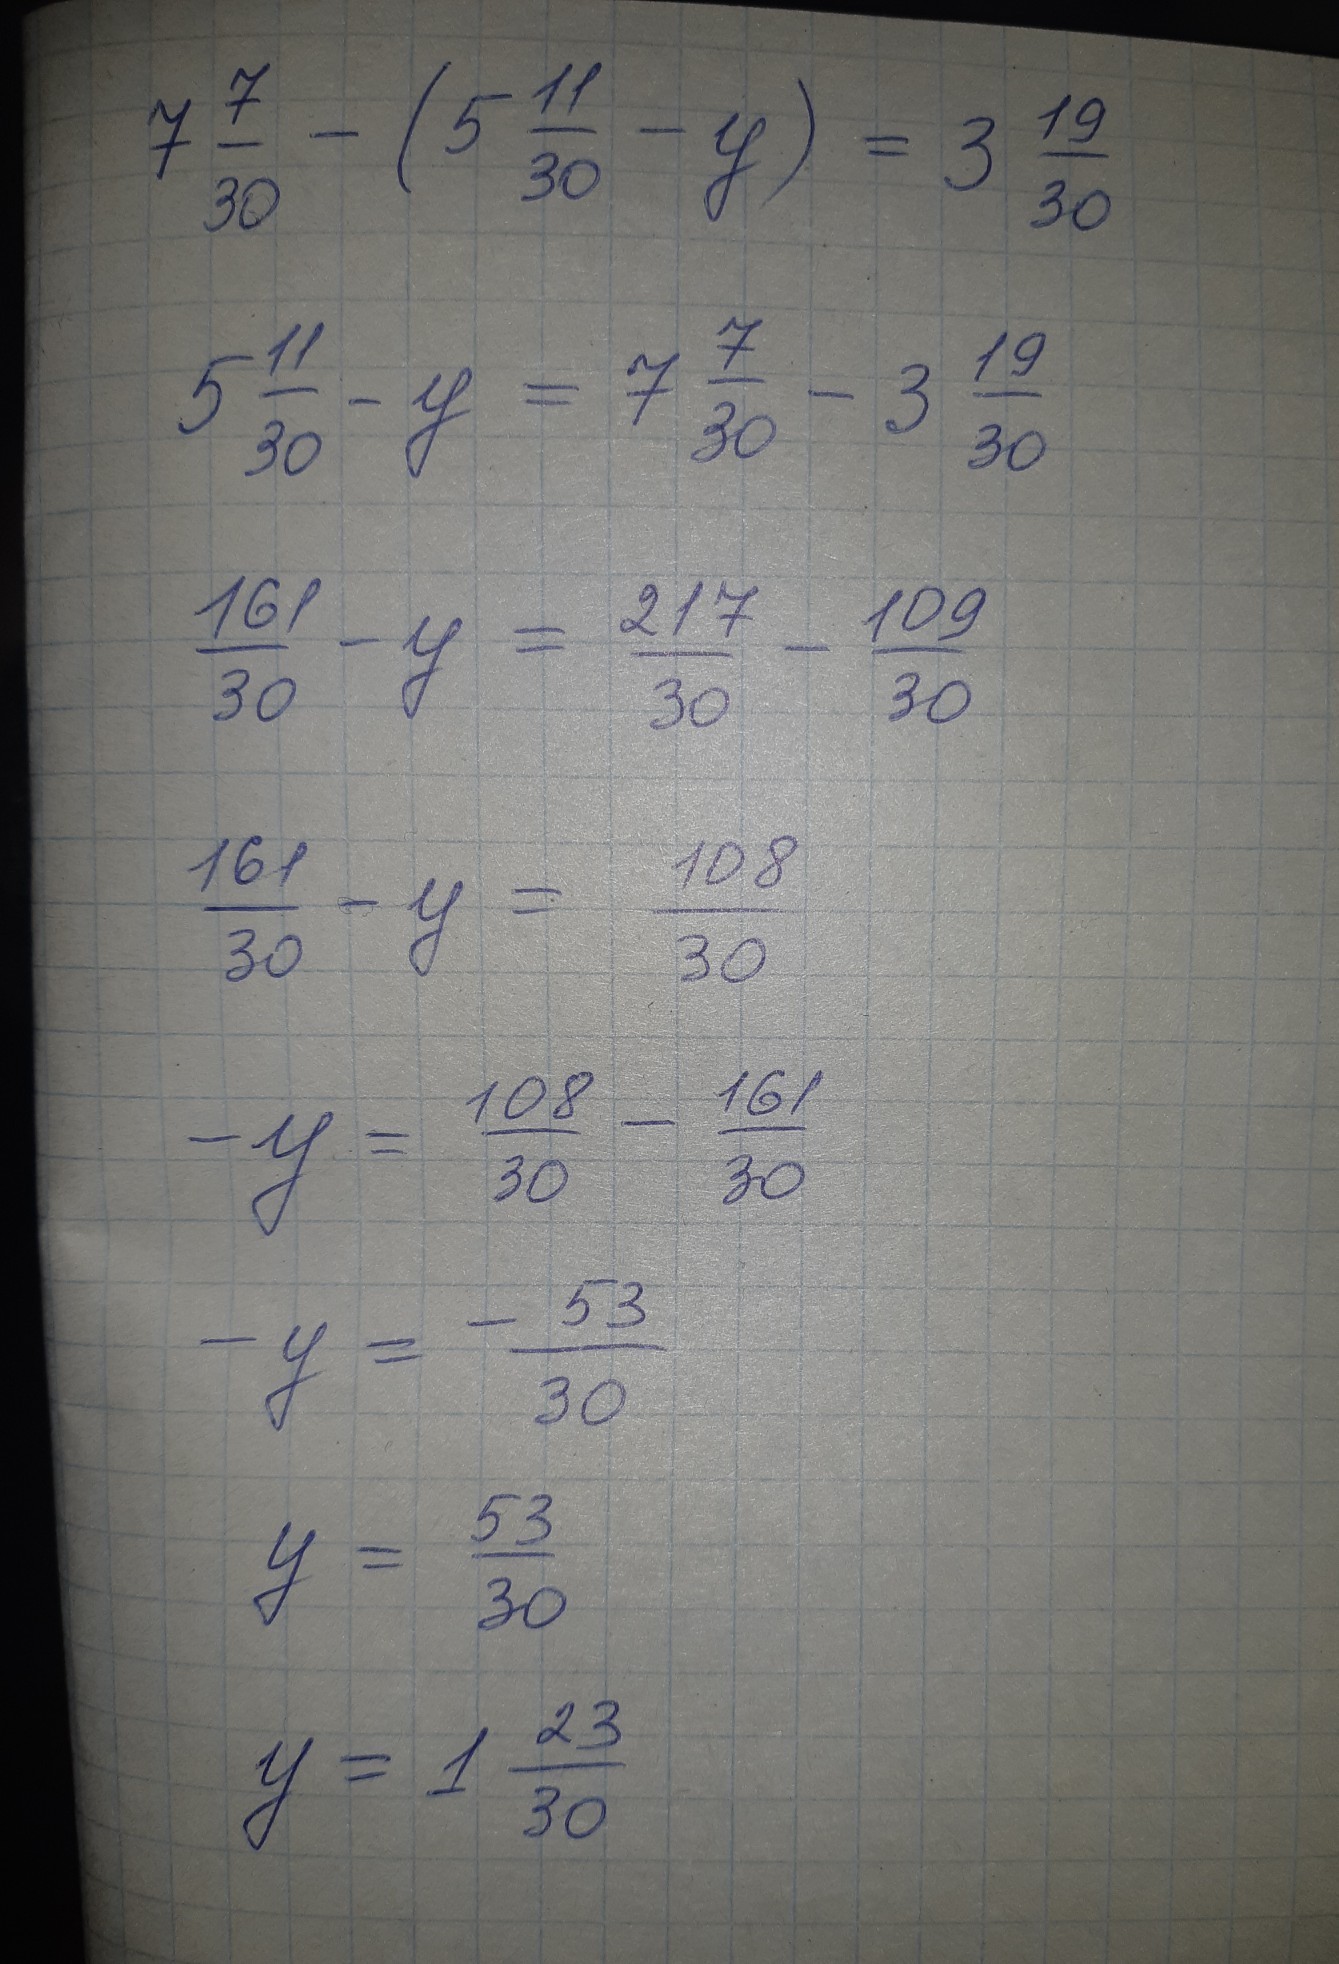 7 7/30 - (5 11/30 - y) = 3 19/30
5 11/30 - y = 7 7/30 - 3 19/30
161/30 - y = 217/30 - 109/30
161/30 - y = 108/30
-y = 108/30 - 161/30
-y = -53/30
y = 53/30
y = 1 23/30